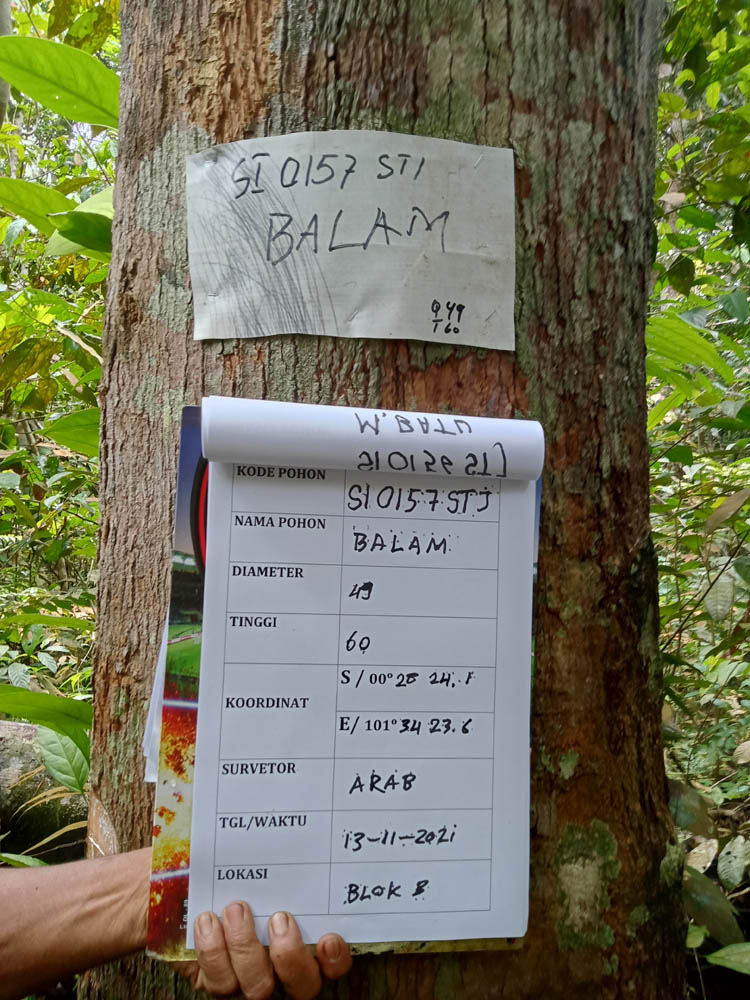 SI 0157 STJ
BALAM
Q 49
T 60
KODE POHON SI 0157 STJ
NAMA POHON BALAM
DIAMETER 49
TINGGI 60
KOORDINAT
S / 00° 28 24.1
E/ 101° 34 23.6
SURVETOR ARAB
TGL/WAKTU 13-11-2021
LOKASI BLOK B